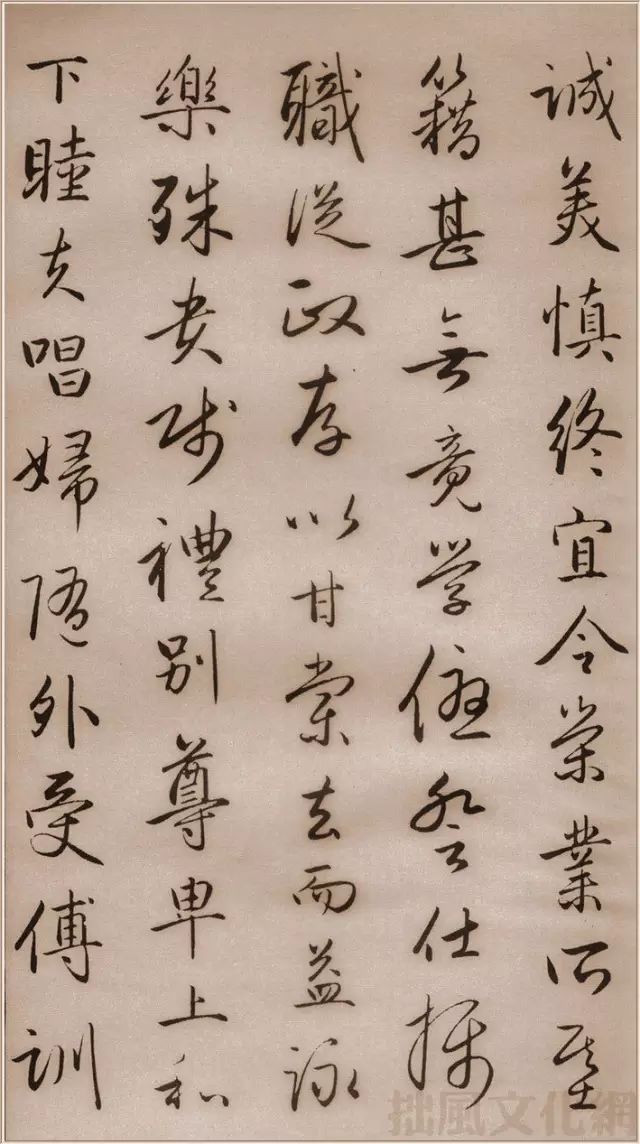 誠美慎終宜令榮業所基
籍甚無竟學優登仕攝
職從政存以甘棠去而益詠
樂殊貴賤禮別尊卑上和
下睦夫唱婦隨外受傅訓
拙風文化網